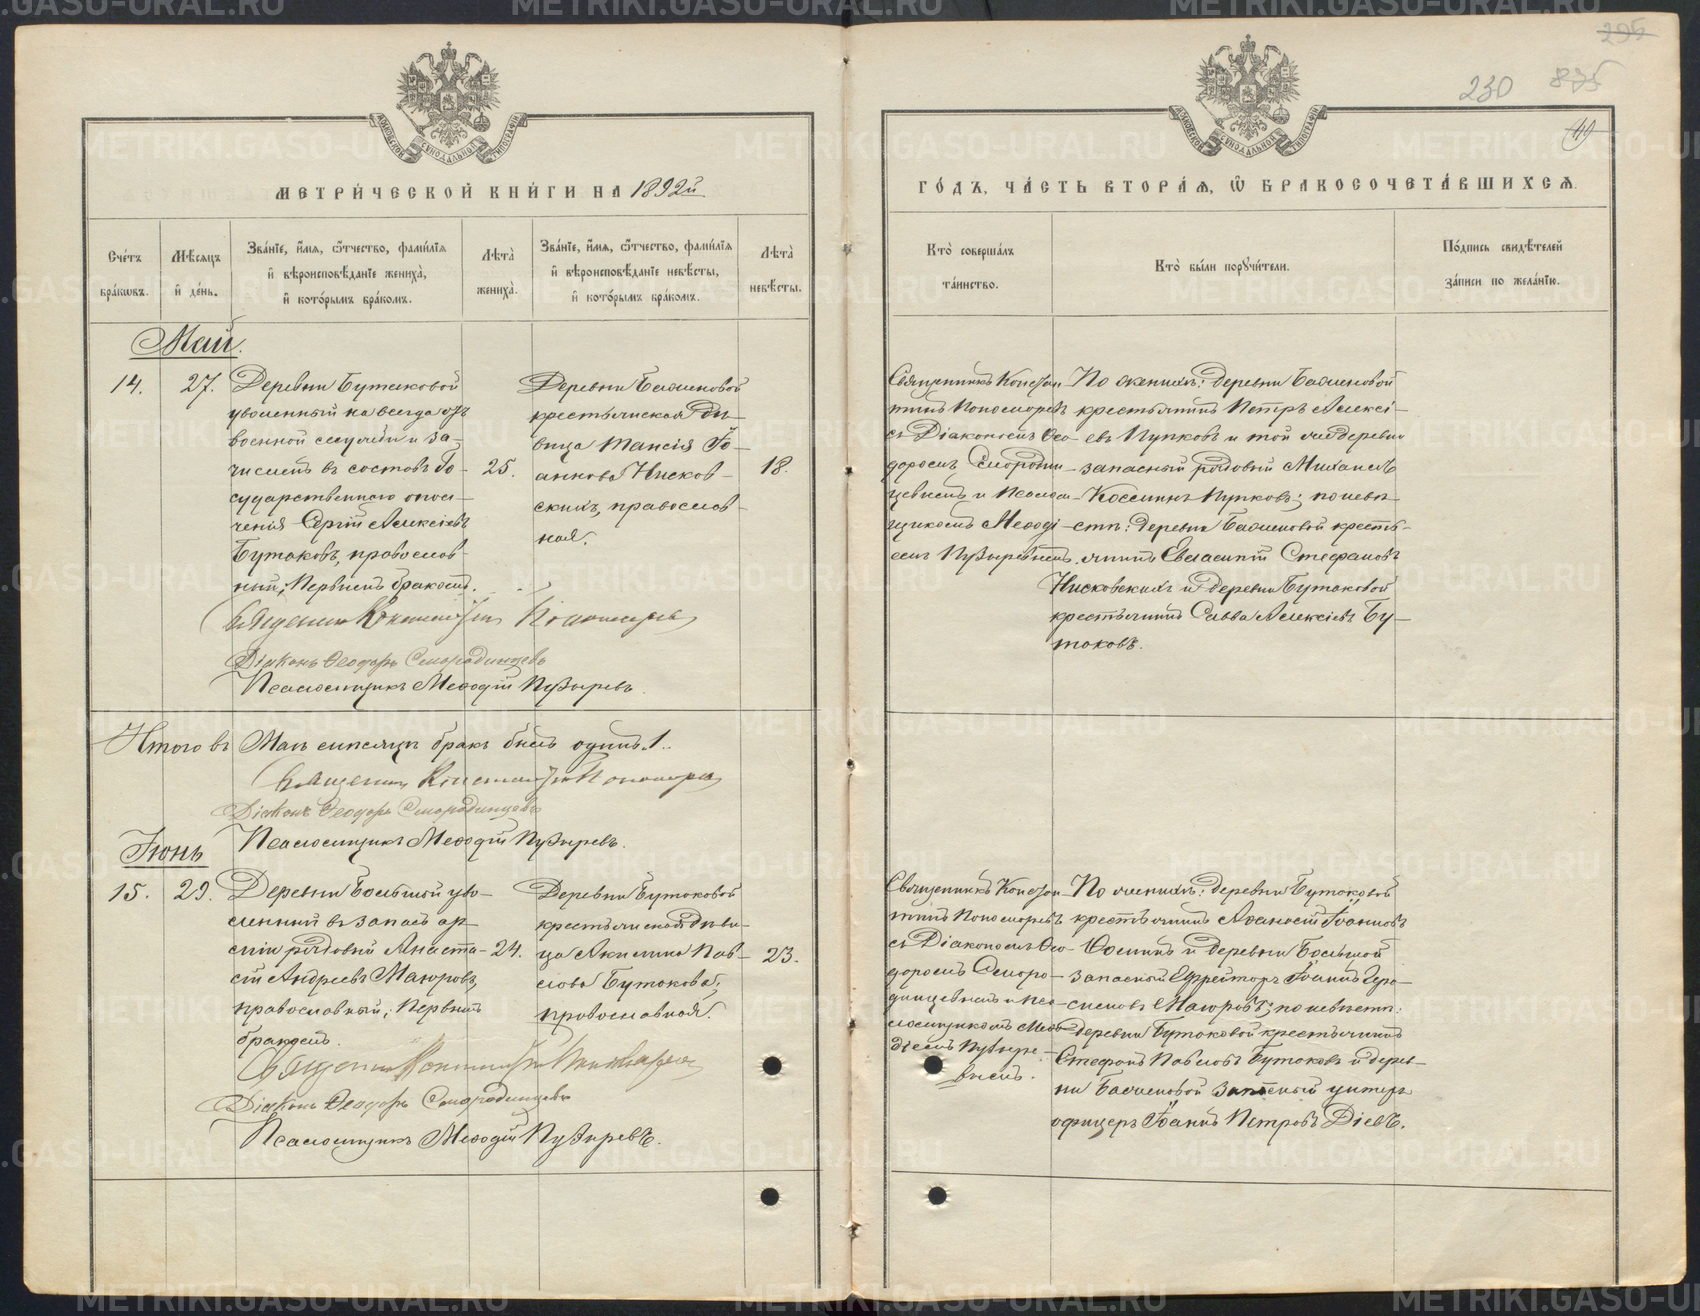 МЕТРИ́ЧЕСКОЙ КНИ́ГИ НА 1892й
Сче́тъ бра́ковъ.
Мѣ́сяцъ и҆ де́нь.
Зва́нїе, и҆́мя, ѻ҆́тчество, фами́лїя и҆ вѣроисповѣ́данїе жениха̀, и҆ кото́рымъ бра́комъ.
Лѣта̀ жениха̀.
Зва́нїе, и҆́мя, ѻ҆́тчество, фами́лїя и҆ вѣроисповѣ́данїе невѣ́сты, и҆ кото́рымъ бра́комъ.
Лѣта̀ невѣ́сты.
Май.
14.
27.
Деревни Бутаковой
уволенный на всегда отъ
военной службы и за-
численъ въ составъ Го-
сударственнаго опол-
ченія Сергій Алексіевъ
Бутаковъ, православ-
ный, Первымъ бракомъ.
25.
Деревни Баженовой
крестьянская дѣ-
вица Таисія Іо-
аннова Нисков-
скихъ, православ-
ная.
18.
Священникъ Константинъ Пономаревъ
Діаконъ Ѳеодоръ Смородинцевъ
Псаломщикъ Меѳодій Пузыревъ.
Итого въ Маѣ мѣсяцѣ бракъ былъ одинъ. 1.
Священникъ Константинъ Пономаревъ
Діаконъ Ѳеодоръ Смородинцевъ
Псаломщикъ Меѳодій Пузыревъ.
Іюнь
15.
29.
Деревни Большой уво-
ленный въ запасъ ар-
міи рядовый Анаста-
сій Андреевъ Маюровъ,
православный, Первымъ
бракомъ.
24.
Деревни Бутаковой
крестьянская дѣви-
ца Акилина Пав-
лова Бутакова,
православная.
23.
Священникъ Константинъ Пономаревъ
Діаконъ Ѳеодоръ Смородинцевъ
Псаломщикъ Меѳодій Пузыревъ.
295
230 835
ГО́ДЪ, ЧА́СТЬ ВТОРА́Я, Ѽ БРАКОСОЧЕТА́ВШИХСЯ.
Кто̀ соверша́лъ та́инство.
Кто̀ бы́ли поручи́тели.
По́дпись свидѣ́телей за́писи по жела́нїю.
Священникъ Констан-
тинъ Пономаревъ
съ Діакономъ Ѳео-
доромъ Смородин-
цевымъ и Псалом-
щикомъ Меѳоді-
емъ Пузыревымъ.
По женихѣ: деревни Баженовой
крестьянинъ Петръ Алексі-
евъ Пупковъ и той же деревни
запасный рядовый Михаилъ
Косминъ Пупковъ; по невѣ-
стѣ: деревни Баженовой кресть-
янинъ Евлампій Стефановъ
Нисковскихъ и деревни Бутаковой
крестьянинъ Савва Алексіевъ Бу-
таковъ.
Священникъ Констан-
тинъ Пономаревъ
съ Діакономъ Ѳео-
доромъ Сморо-
динцевымъ и Пса-
ломщикомъ Меѳо-
діемъ Пузыре-
вымъ.
По женихѣ: деревни Бутаковой
крестьянинъ Аѳанасій Іоанновъ
Ѳоминъ и деревни Большой
запасной Ефрейторъ Іоаннъ Гера-
симовъ Маюровъ; по невѣстѣ:
деревни Бутаковой крестьянинъ
Стефанъ Павловъ Бутаковъ и дерев-
ни Баженовой Запасный унтеръ
офицеръ Іоаннъ Петровъ Діевъ.
METRIKI.GASO-URAL.RU